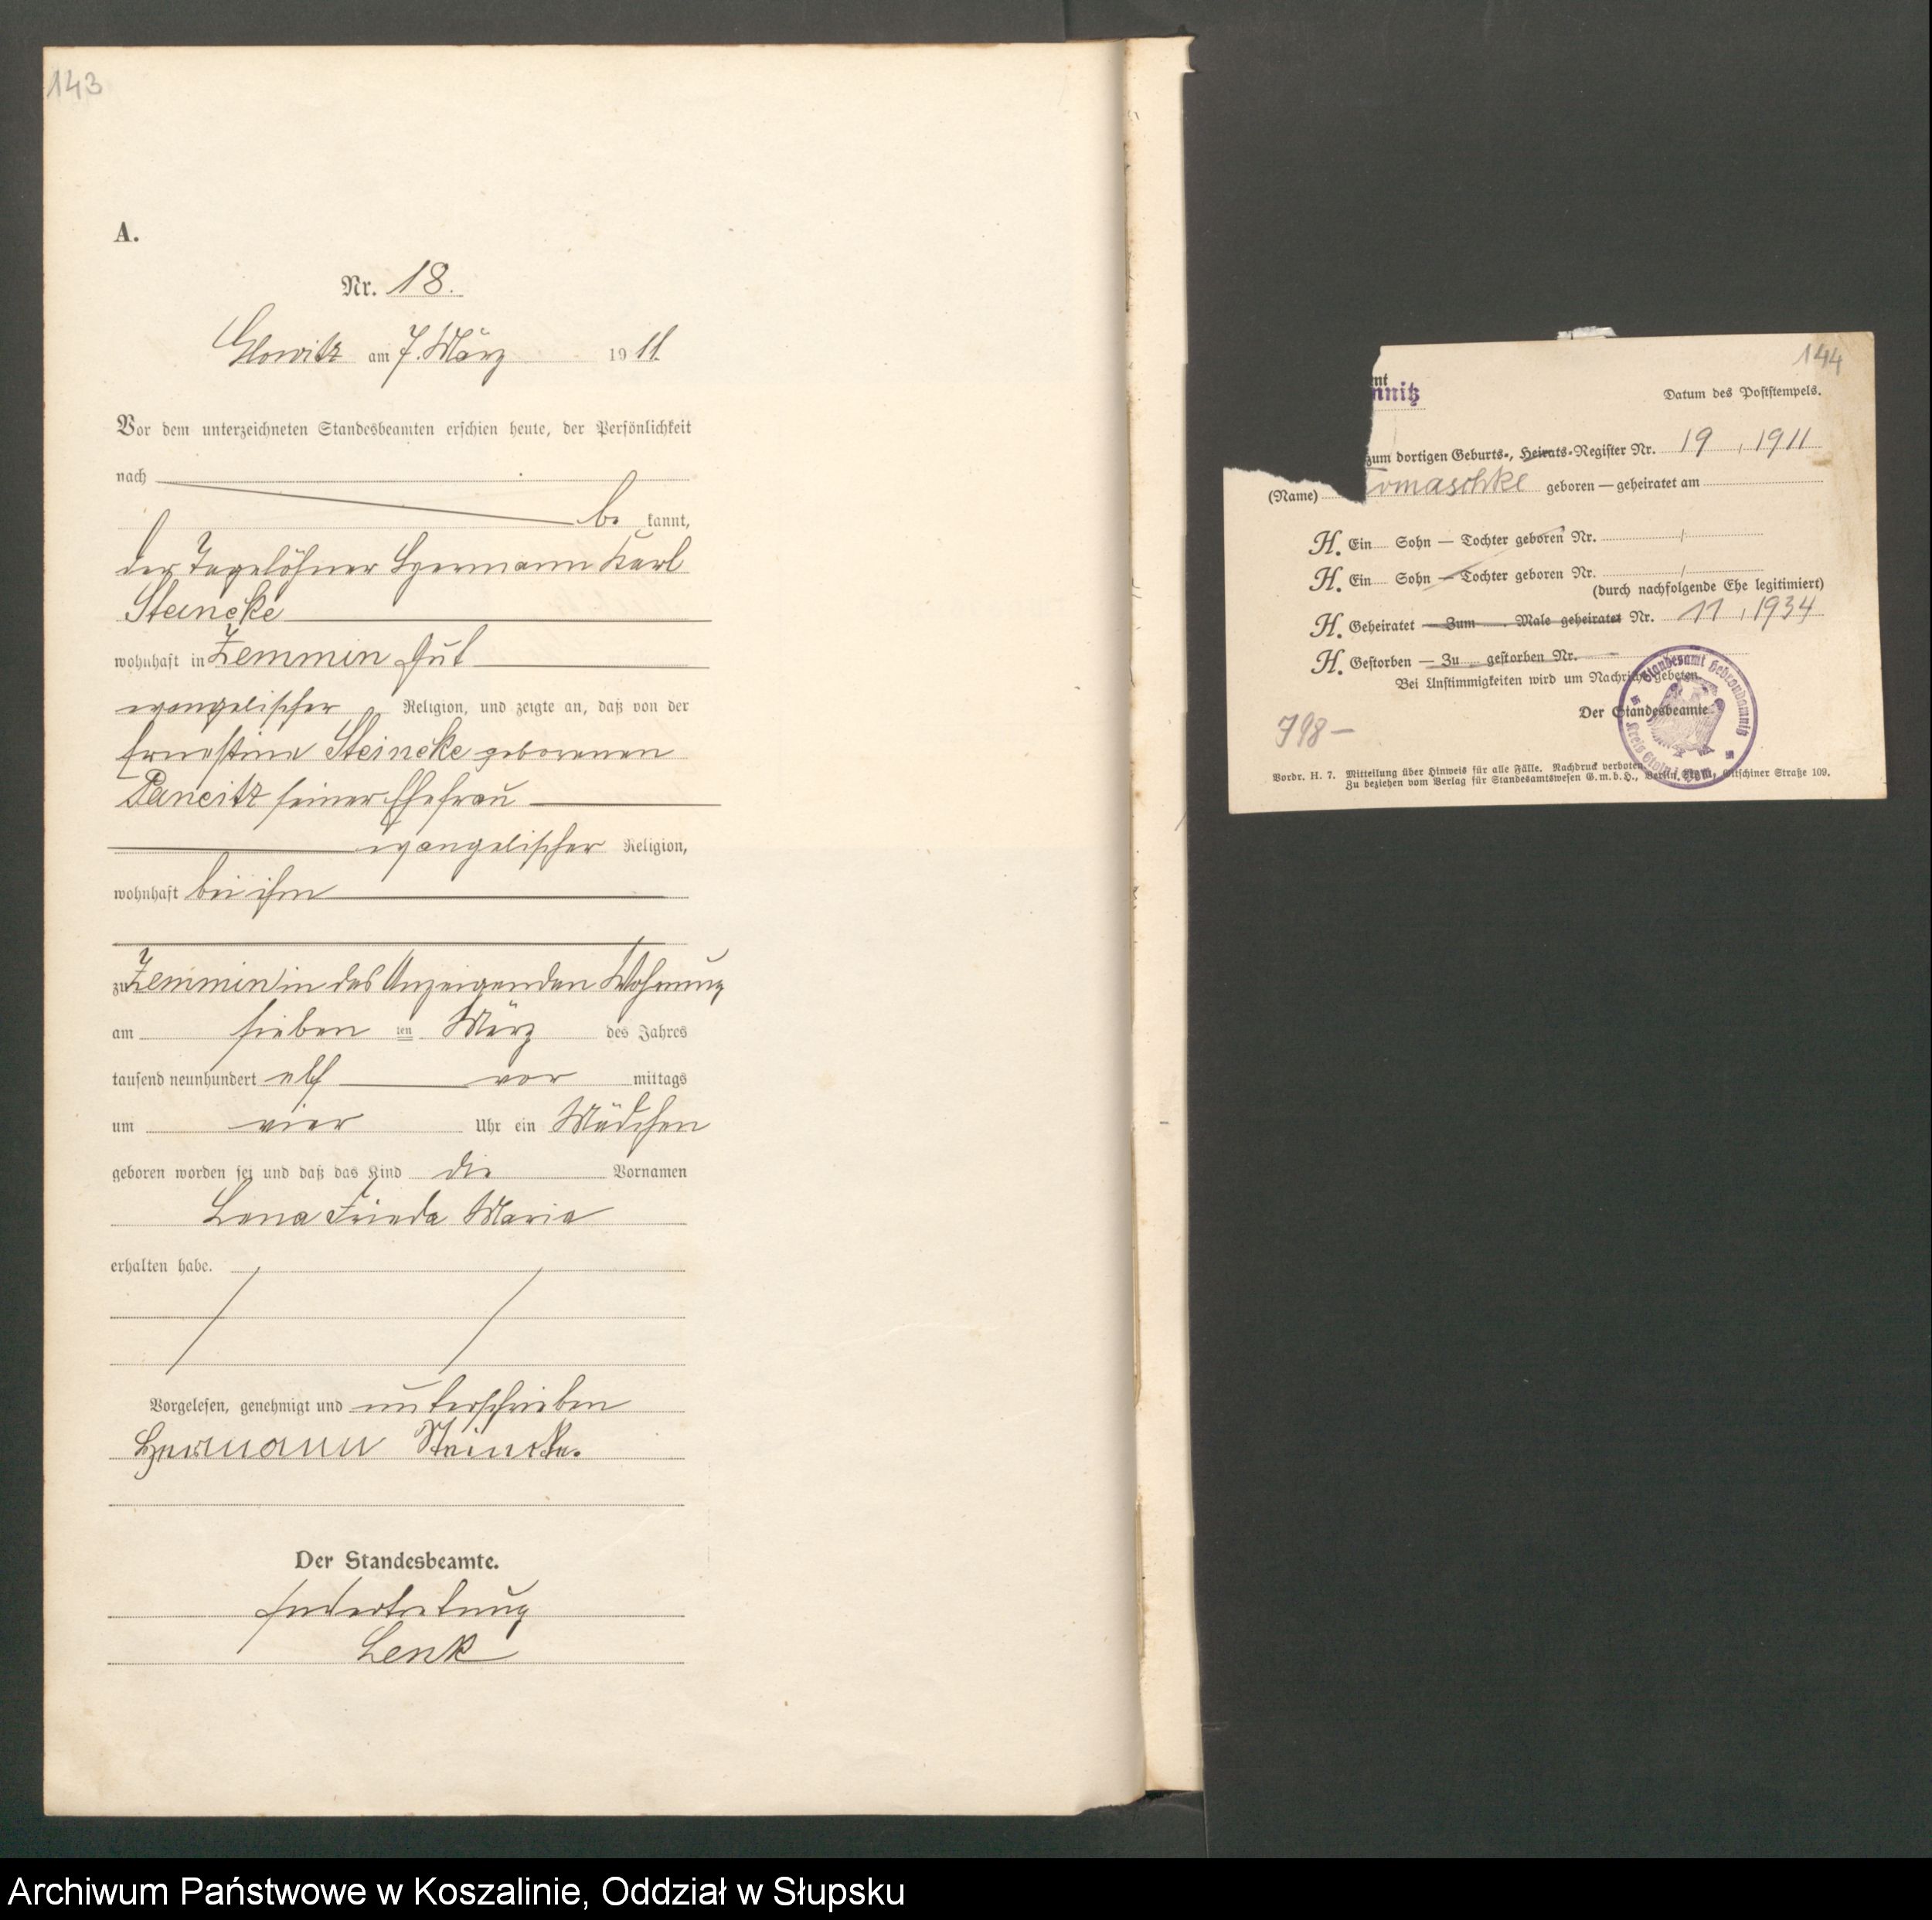 143
A.
Nr. 18.
Glowitz am 7. März 1911.
Vor dem unterzeichneten Standesbeamten erschien heute, der Persönlichkeit
nach
be kannt,
der Tagelöhner Hermann Karl
Steincke
wohnhaft in Zemmin Gut
evangelischer Religion, und zeigte an, daß von der
Ernestine Steincke geborenen
Pancitz seiner Ehefrau
evangelischer Religion,
wohnhaft bei ihm
zu Zemmin in des Anzeigenden Wohnung
am sieben ten März des Jahres
tausend neunhundert elf vor mittags
um vier Uhr ein Mädchen
geboren worden sei und daß das Kind die Vornamen
Lena Frieda Maria
erhalten habe.
Vorgelesen, genehmigt und unterschrieben
Hermann Steincke.
Der Standesbeamte.
In Vertretung
Lenk
144
mnitz
Datum des Poststempels.
zum dortigen Geburts-, Heirats-Register Nr. 19, 1911
(Name) omaschke geboren — geheiratet am
H. Ein Sohn — Tochter geboren Nr. /
H. Ein Sohn — Tochter geboren Nr. /
(durch nachfolgende Ehe legitimiert)
H. Geheiratet — Zum . Male geheiratet Nr. 11, 1934
H. Gestorben — Zu gestorben Nr.
Bei Unstimmigkeiten wird um Nachricht gebeten.
Der Standesbeamte
798 —
Standesamt Gebrondamnitz
Kreis Stolp i. Pom.
Vordr. H. 7. Mitteilung über Hinweis für alle Fälle. Nachdruck verboten.
Zu beziehen vom Verlag für Standesamtswesen G.m.b.H., Berlin, Gitschiner Straße 109.
Archiwum Państwowe w Koszalinie, Oddział w Słupsku